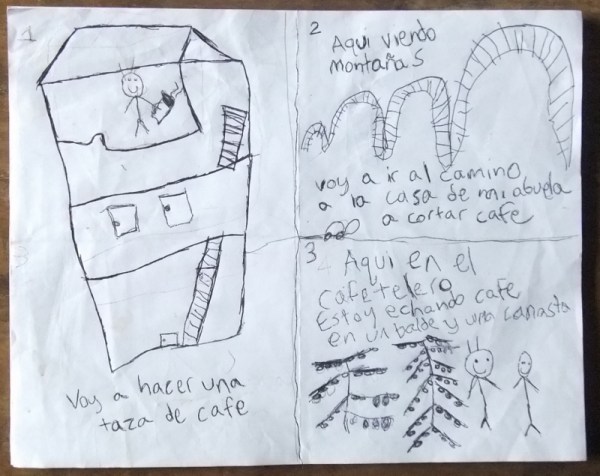 1
Voy a hacer una
taza de cafe
2
Aqui viendo
montañas
voy a ir al camino
a la casa de mi abuela
a cortar cafe
3
Aqui en el
cafetelero
Estoy echando cafe
en un balde y una canasta